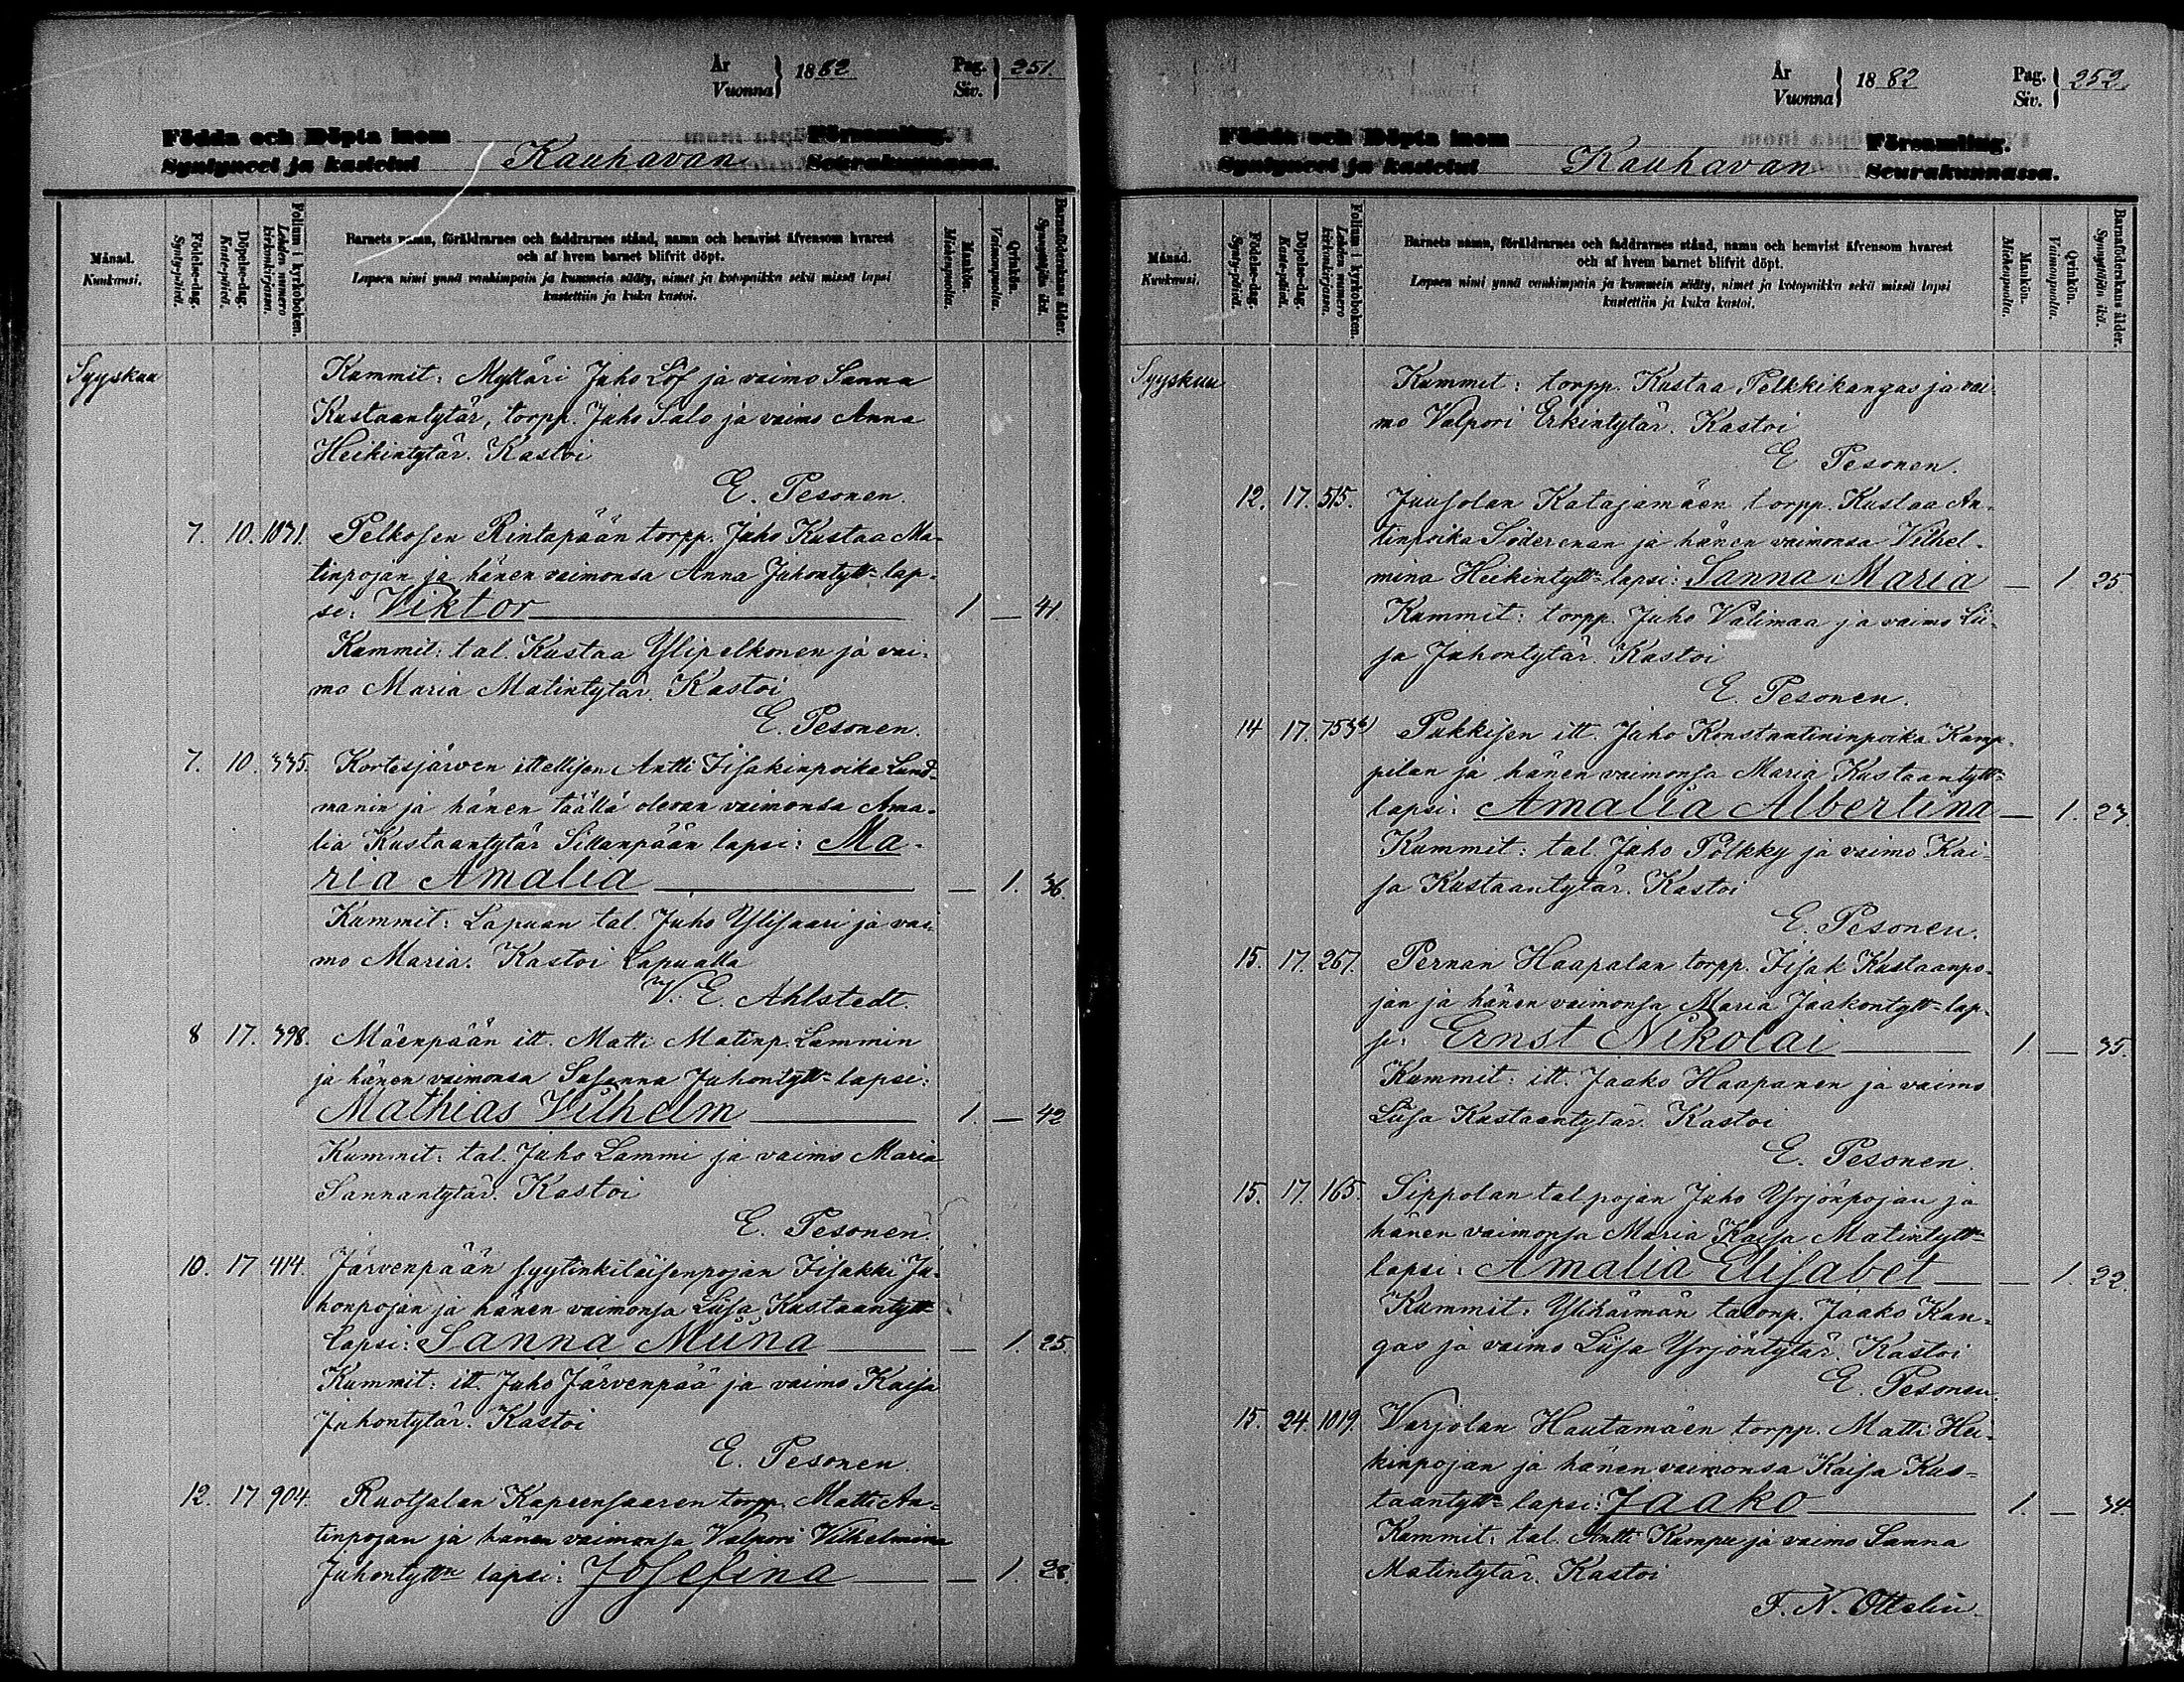 År
Vuonna } 1882 Pag.
Siv. } 251.
Födda och Döpta inom Församling.
Syntyneet ja kastetut Kauhavan Seurakunnassa.
Månad.
Kuukausi.
Födelse-dag.
Synty-päivä.
Döpelse-dag.
Kaste-päivä.
Folium i kyrkoboken.
Lehden numero kirkonkirjassa.
Barnets namn, föräldrarnes och faddrarnes stånd, namn och hemvist äfvensom hvarest
och af hvem barnet blifvit döpt.
Lapsen nimi ynnä vanhimpain ja kummein sääty, nimet ja kotopaikka sekä missä lapsi
kastettiin ja kuka kastoi.
Mankön.
Miehenpuolta.
Qvinkön.
Vaimonpuolta.
Barnaföderskans ålder.
Synnyttäjän ikä.
Syyskuu Kummit: Mylläri Juho Löf ja vaimo Sanna
Kustaantytär, torpp. Juho Salo ja vaimo Anna
Heikintytär. Kastoi
E. Pesonen.
7. 10. 1031. Pelkosen Rintapään torpp. Juho Kustaa Ma-
tinpojan ja hänen vaimonsa Anna Juhontytt:n lap-
si: Viktor 1 — 41.
Kummit: tal. Kustaa Ylipelkonen ja vai-
mo Maria Matintytär. Kastoi
E. Pesonen.
7. 10. 335. Kortesjärven itellisen Antti Iisakinpoika Land-
manin ja hänen täällä olevan vaimonsa Ama-
lia Kustaantytär Sillanpään lapsi: Ma-
ria Amalia — 1. 36.
Kummit: Lapuan tal. Juho Ylisaari ja vai-
mo Maria. Kastoi Lapualla
V. E. Ahlstedt.
8 17. 398. Mäenpään itt. Matti Matinp. Lammin
ja hänen vaimonsa Susanna Juhontytt:n lapsi:
Mathias Vilhelm 1. — 42
Kummit: tal. Juho Lammi ja vaimo Maria
Sannantytär. Kastoi
E. Pesonen.
10. 17 414. Järvenpään syytinkiläisenpojan Iisakki Ju-
honpojan ja hänen vaimonsa Liisa Kustaantytt:n
lapsi: Sanna Miina — 1. 25.
Kummit: itt. Juho Järvenpää ja vaimo Kaisa
Juhontytär. Kastoi
E. Pesonen.
12. 17 904. Ruotsalan Kapeensaaren torpp. Matti An-
tinpojan ja hänen vaimonsa Valpori Vilhelmina
Juhontytt:n lapsi: Josefina — 1. 28.
År
Vuonna } 1882 Pag.
Siv. } 252.
Födda och Döpta inom Församling.
Syntyneet ja kastetut Kauhavan Seurakunnassa.
Månad.
Kuukausi.
Födelse-dag.
Synty-päivä.
Döpelse-dag.
Kaste-päivä.
Folium i kyrkoboken.
Lehden numero kirkonkirjassa.
Barnets namn, föräldrarnes och faddrarnes stånd, namn och hemvist äfvensom hvarest
och af hvem barnet blifvit döpt.
Lapsen nimi ynnä vanhimpain ja kummein sääty, nimet ja kotopaikka sekä missä lapsi
kastettiin ja kuka kastoi.
Mankön.
Miehenpuolta.
Qvinkön.
Vaimonpuolta.
Barnaföderskans ålder.
Synnyttäjän ikä.
Syyskuu Kummit: torpp. Kustaa Pelkkikangas ja vai-
mo Valpori Erkintytär. Kastoi
E Pesonen.
12. 17. 515. Juusolan Katajamäen torpp. Kustaa An-
tinpoika Söderenan ja hänen vaimonsa Vilhel-
mina Heikintytt:n lapsi: Sanna Maria — 1. 25.
Kummit: torpp. Juho Välimaa ja vaimo Lii-
sa Juhontytär. Kastoi
E. Pesonen.
14 17. Pukkisen itt. Juho Konstantininpoika Kamp-
pilan ja hänen vaimonsa Maria Kustaantytt:n
lapsi: Amalia Albertina — 1. 27.
Kummit: tal. Juho Pölkky ja vaimo Kai-
sa Kustaantytär. Kastoi
E. Pesonen.
15. 17. 267. Pernan Haapalan torpp. Iisak Kustaanpo-
jan ja hänen vaimonsa Maria Jaakontytt:n lap-
si: Ernst Nikolai 1. — 35.
Kummit: itt. Jaako Haapanen ja vaimo
Liisa Kustaantytär. Kastoi
E. Pesonen.
15. 17. 165. Sippolan tal.pojan Juho Yrjönpojan ja
hänen vaimonsa Maria Kaisa Matintytt:n
lapsi: Amalia Elisabet — 1. 22.
Kummit: Ylihärmän talonp. Jaako Kan-
gas ja vaimo Liisa Yrjöntytär. Kastoi
E. Pesonen.
15. 24. 1019. Varjolan Hautamäen torpp. Matti Hei-
kinpojan ja hänen vaimonsa Kaisa Kus-
taantytt:n lapsi: Jaako 1. — 34.
Kummit: tal. Antti Kampu ja vaimo Sanna
Matintytär. Kastoi
F. N. Ottelin.